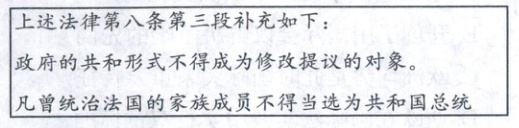 上述法律第八条第三段补充如下：
政府的共和形式不得成为修改提议的对象。
凡曾统治法国的家族成员不得当选为共和国总统